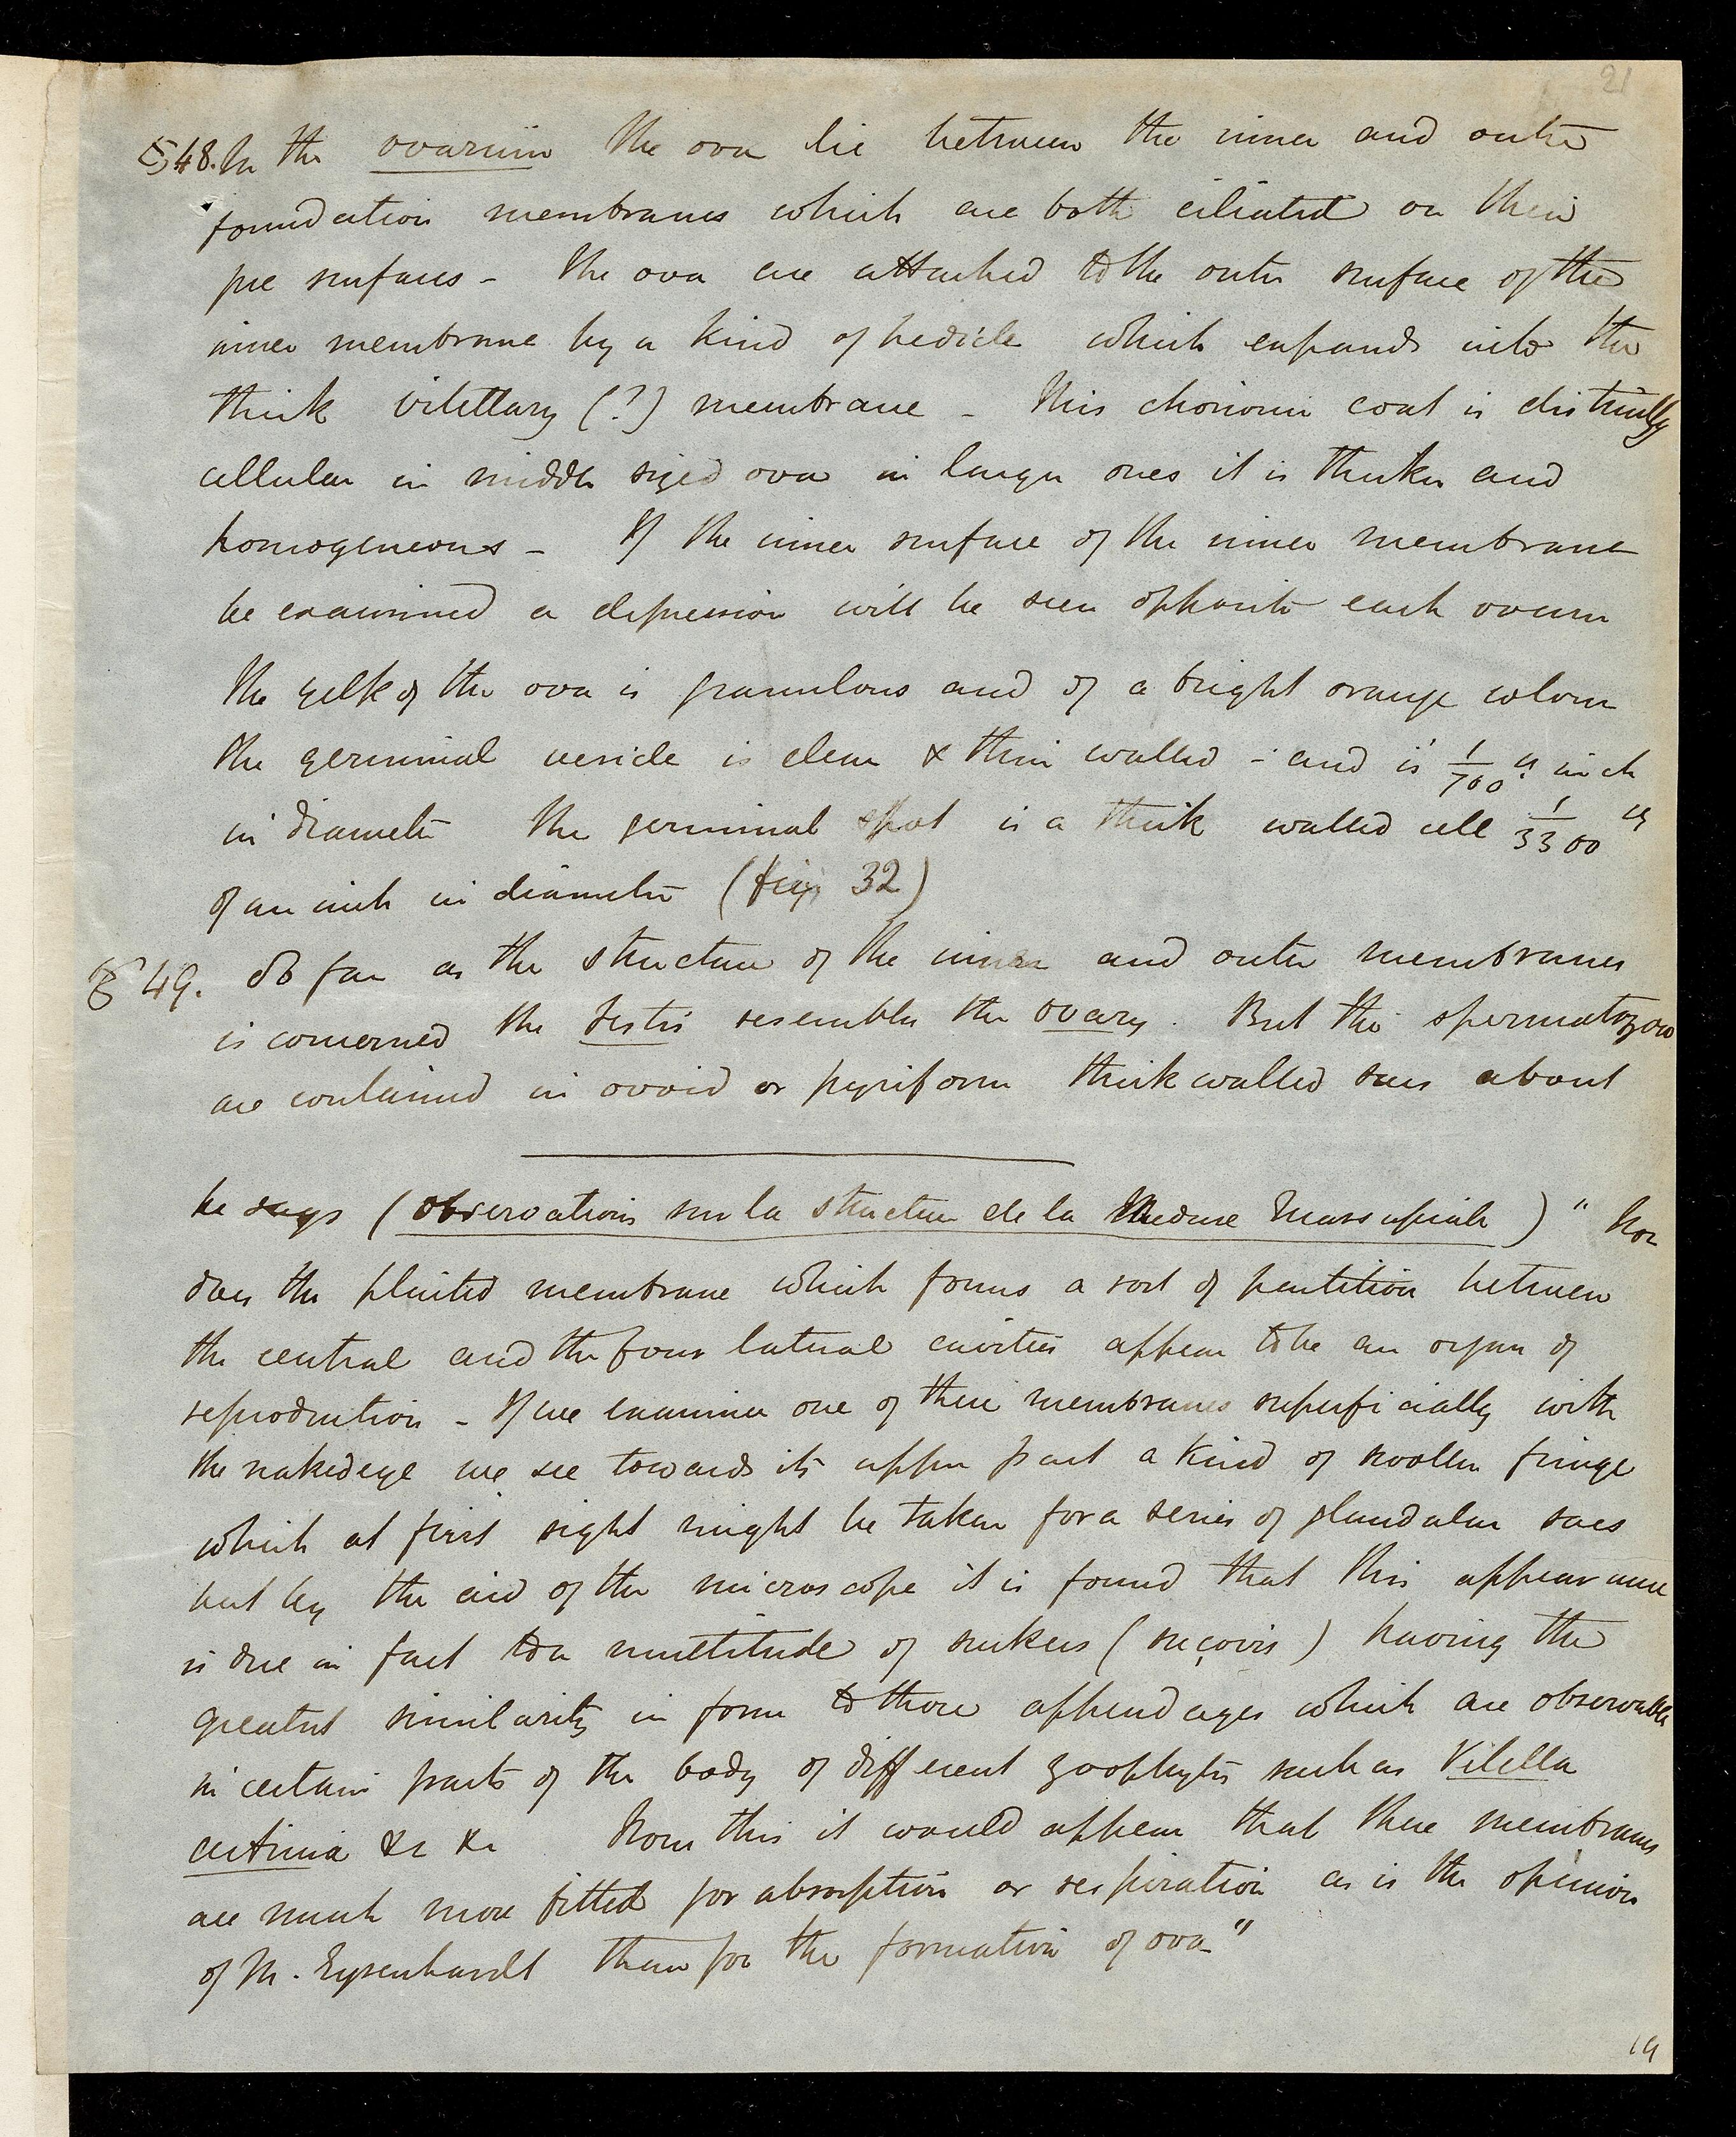 21
§ 48. In the ovarium the ova lie between the inner and outer
foundation membranes which are both ciliated on their
free surfaces - The ova are attached to the outer surface of the
inner membrane by a kind of pedicle which expands into the
thick vitellary (?) membrane - This chorionic coat is distinctly
cellular in middle sized ova in larger ones it is thicker and
homogeneous - If the inner surface of the inner membrane
be examined a depression will be seen opposite each ovum
The yelk of the ova is granulous and of a bright orange colour
the germinal vesicle is clear & thin walled - and is 1/700th inch
in diameter the germinal spot is a thick walled cell 1/3300th
of an inch in diameter (fig. 32)
§ 49. So far as the structure of the inner and outer membranes
is concerned the testis resembles the ovary. But the spermatozoa
are contained in ovoid or pyriform thick walled sacs about
he says (Observations sur la structure de la Meduse Marsupiale) " Nor
does the plaited membrane which forms a sort of partition between
the central and the four lateral cavities appear to be an organ of
reproduction - If we examine one of these membranes superficially with
the naked eye we see towards its upper part a kind of swollen fringe
which at first sight might be taken for a series of glandular sacs
but by the aid of the microscope it is found that this appearance
is due in fact to a multitude of suckers (suçoirs) having the
greatest similarity in form to those appendages which are observable
in certain parts of the body of different zoophytes such as Velella
actinia &c &c From this it would appear that these membranes
are much more fitted for absorption or respiration as is the opinion
of M. Eysenhardt than for the formation of ova"
19